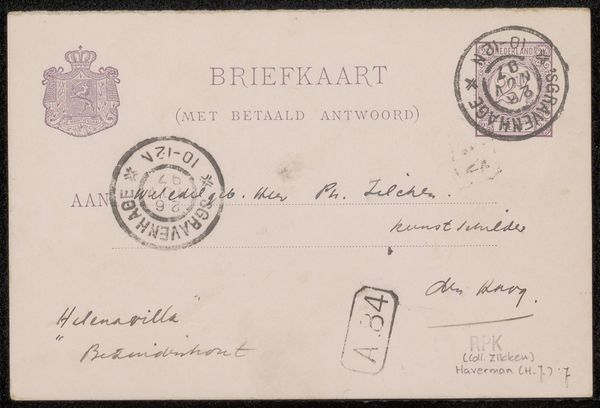 BRIEFKAART
(MET BETAALD ANTWOORD)
NEDERLAND
'SGRAVENHAGE
26 NOV 97
10-12N
'SGRAVENHAGE
26 97
10-12N
AAN Weledelgeb. Heer Ph. Zilcken.
Kunstschilder
den Haag.
"Helenavilla"
" Bezuidenhout
A.84
RPK
(Coll. Zilcken)
Haverman (H.J.): 7